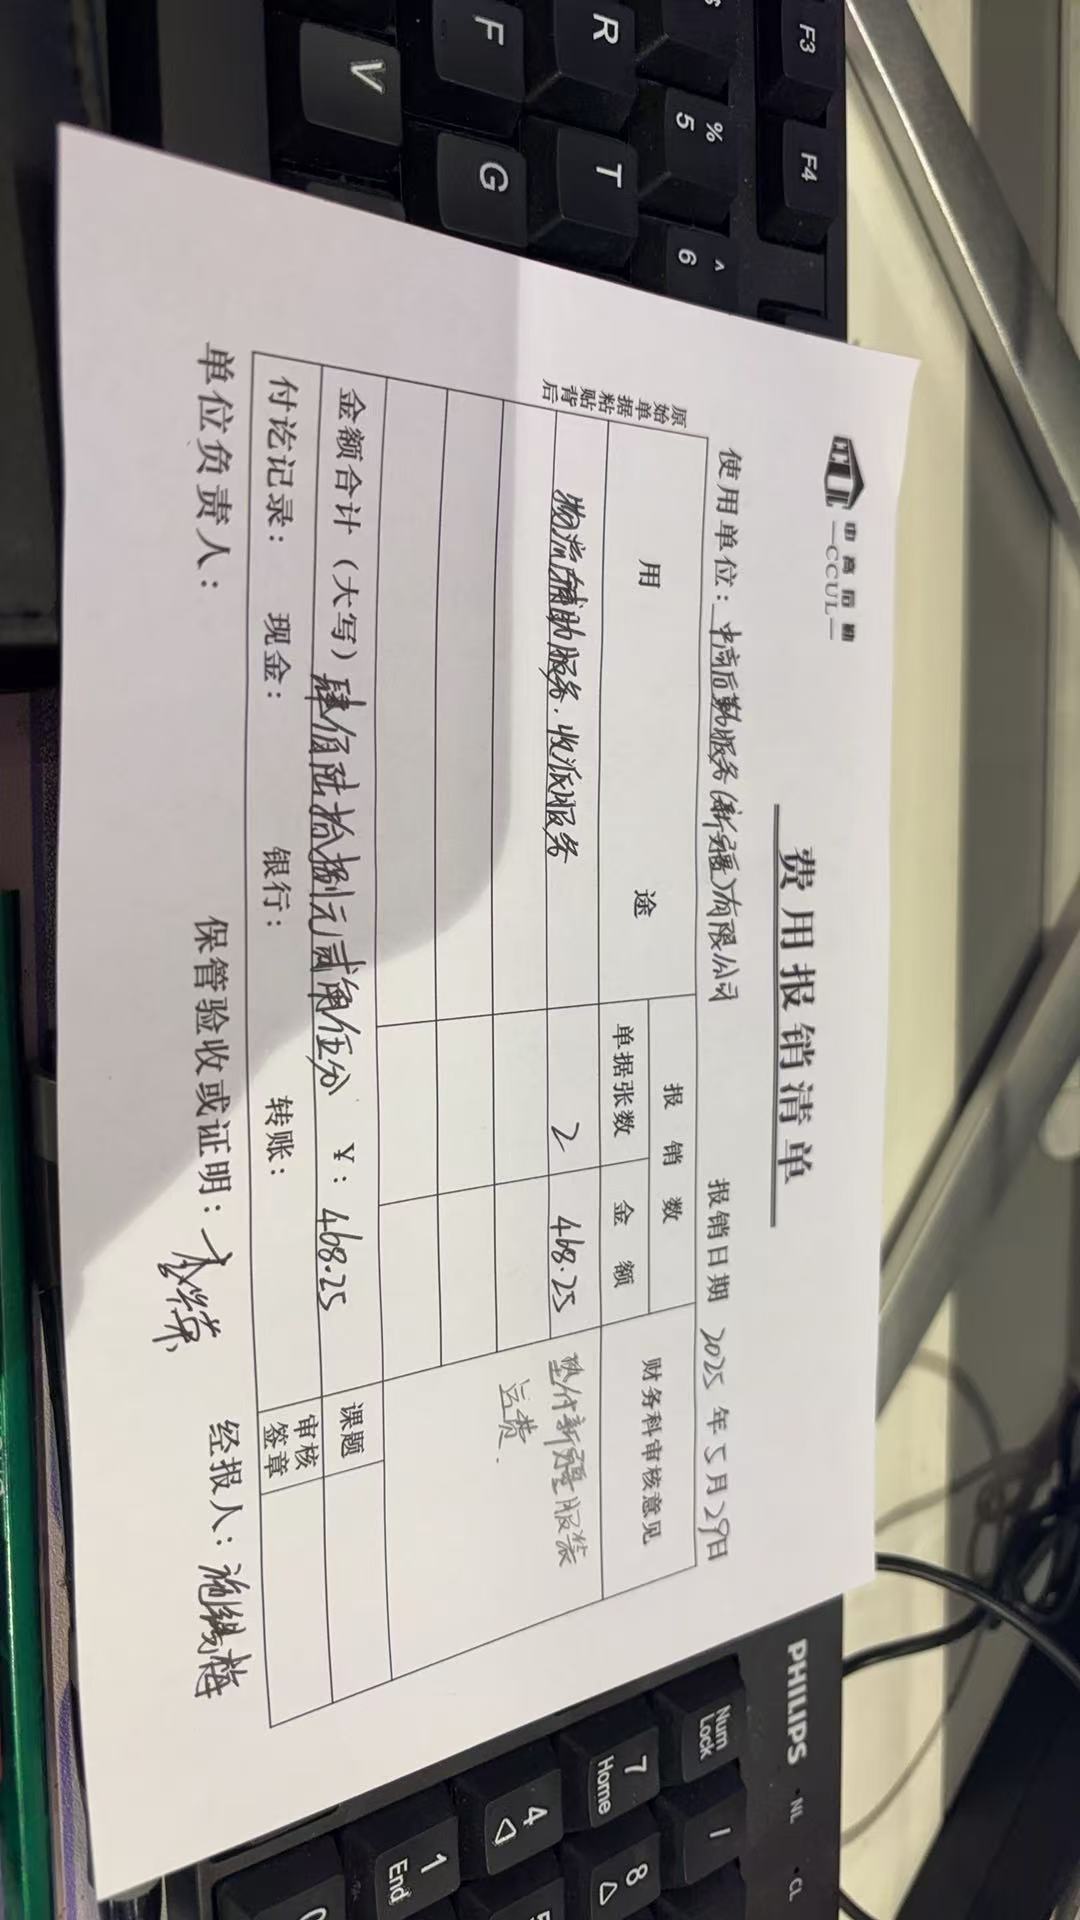 中商后勤
—CCUL—
费用报销清单
使用单位：中商后勤服务（新疆）有限公司 报销日期 2025年5月29日
原始单据粘贴背后
用途 报销数 财务科审核意见
单据张数 金额
物流辅助服务.收派服务 2 468.25 垫付新疆服装
运费.
金额合计（大写）肆佰陆拾捌元贰角伍分 ￥：468.25 课题
付讫记录： 现金： 银行： 转账： 审核签章
单位负责人： 保管验收或证明： 经报人：
F3
F4
%
5
^
6
R
T
F
G
V
PHILIPS
NL
CL
Num
Lock
/
7
Home
8
4
1
End